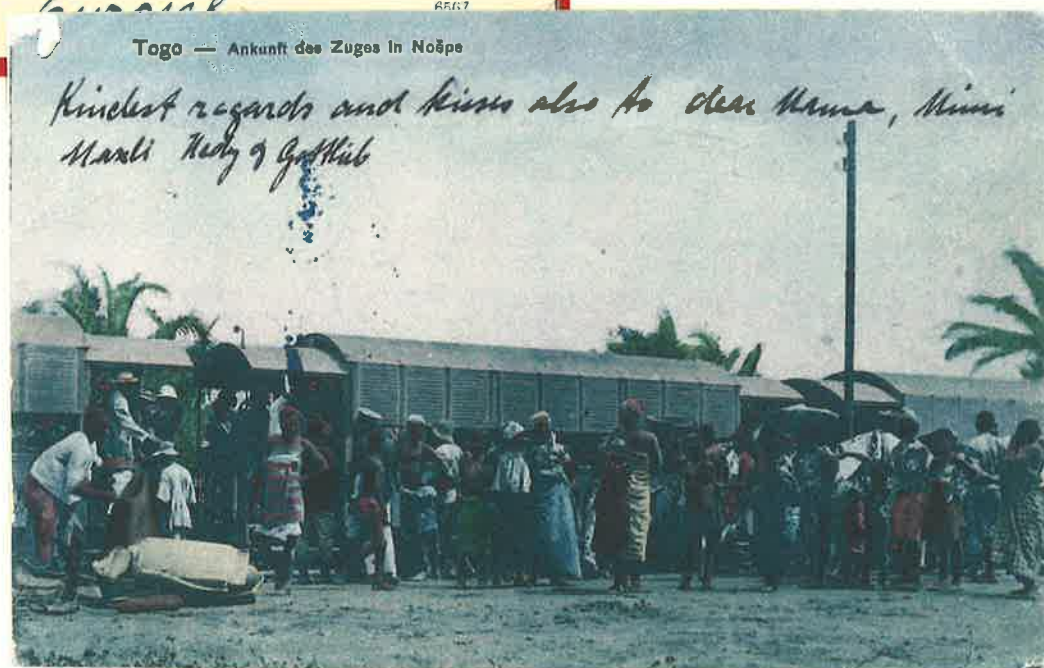 6567
Togo — Ankunft des Zuges in Noëpe
Kindest regards and kisses also to dear Mama, Mimi
Hedy & Gottlieb